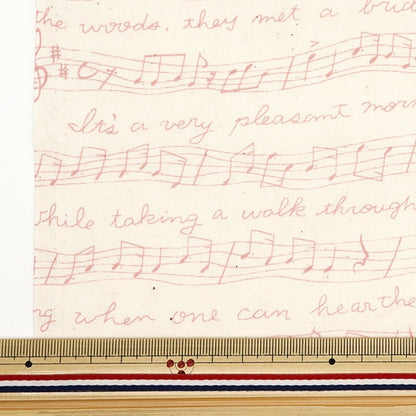 the woods, they met a bud
It's a very pleasant morn
while taking a walk through
ng when one can hearthe